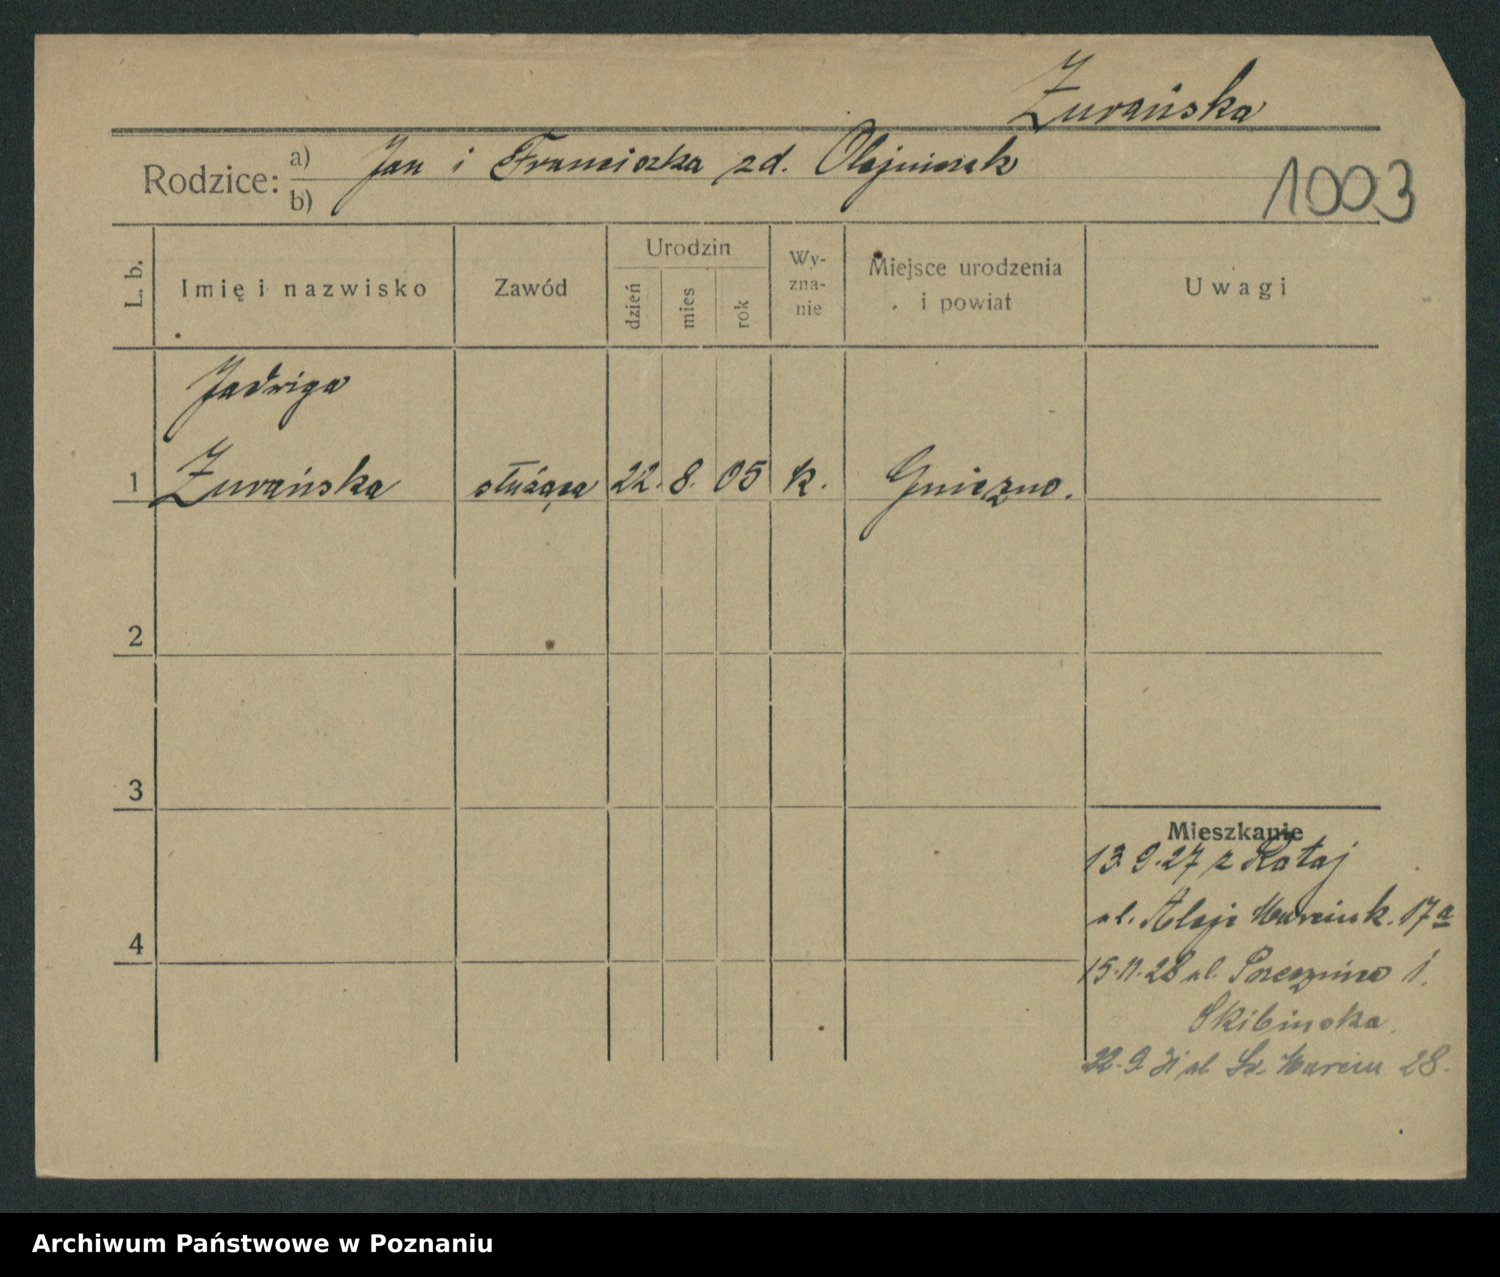 Żurańska
Rodzice: a) Jan i Franciszka zd. Olejniczak
b)
1003
L. b.
Imię i nazwisko
Zawód
Urodzin
dzień
mies
rok
Wy-
zna-
nie
Miejsce urodzenia
i powiat
Uwagi
Jadwiga
1 Żurańska służąca 22. 8. 05 k. Gniezno.
2
3
Mieszkanie
13.9.27 z Rataj
ul. Aleje Marcink. 17a
4
15.11.28 ul. 1.
Skibinska.
22.9.31 ul Św. Marcin 28.
Archiwum Państwowe w Poznaniu